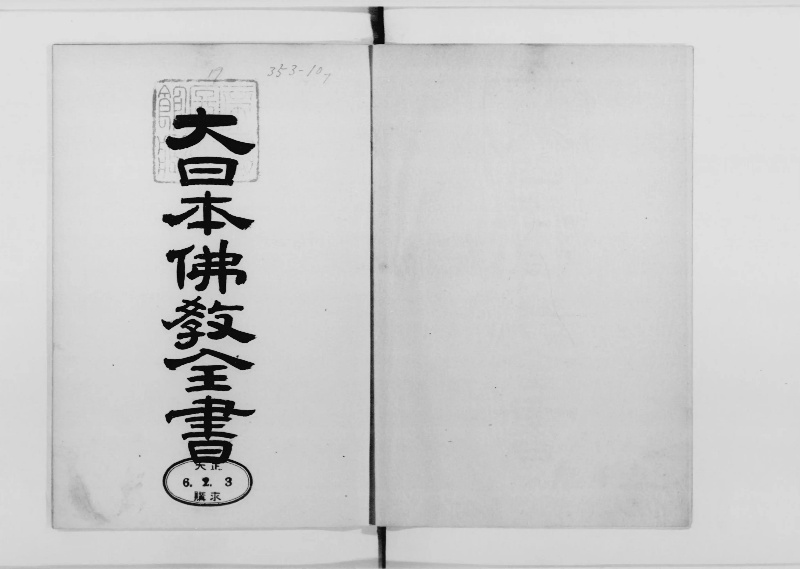 353-107
大日本佛教全書
大正
6. 2. 3
購求